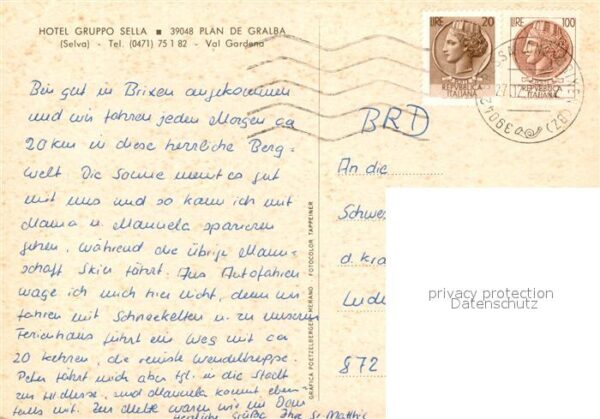 HOTEL GRUPPO SELLA ■ 39048 PLAN DE GRALBA
(Selva) - Tel. (0471) 75 1 82 - Val Gardena
LIRE 20
REPVBBLICA
ITALIANA
LIRE 100
REPVBBLICA
ITALIANA
39042
(BZ)
Bin gut in Brixen angekommen
und wir fahren jeden Morgen ca
20 km in diese herrliche Berg-
welt. Die Sonne meint es gut
mit uns und so kann ich mit
Mama u. Manuela spazieren
gehen, während die übrige Mann-
schaft Skier fährt. Ans Autofahren
wage ich mich hier nicht, denn wir
fahren mit Schneeketten u. zu unserem
Ferienhaus führt ein Weg mit ca
20 Kehren, die reinste Wendeltreppe.
Peter fährt mich aber tgl. in die Stadt
zur Hl. Messe, und Manuela kommt eben-
falls mit. Zur Mette waren wir im Dom
Herzliche Grüße Ihre Sr.
GRAFICA POETZELBERGER MERANO FOTOCOLOR TAPPEINER
BRD
An die
Schwes
d. Kra
Lud
872
privacy protection
Datenschutz